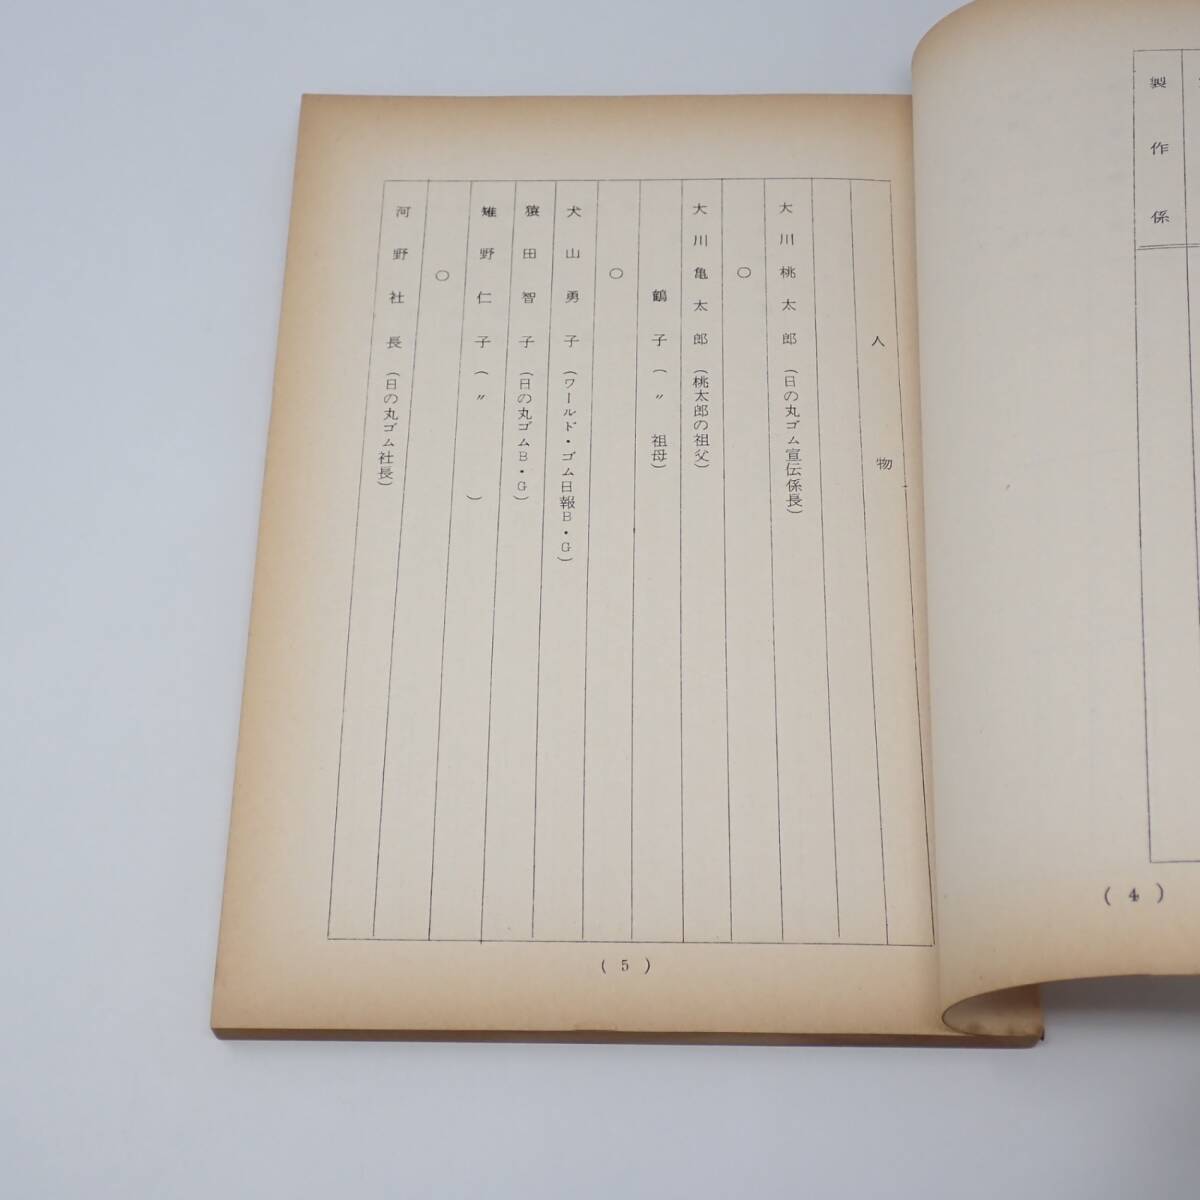 製作係
(4)
人物
大川桃太郎(日の丸ゴム宣伝係長)
○
大川亀太郎(桃太郎の祖父)
鶴子(〃祖母)
○
犬山勇子(ワールド・ゴム日報B・G)
猿田智子(日の丸ゴムB・G)
雉野仁子(〃)
○
河野社長(日の丸ゴム社長)
(5)